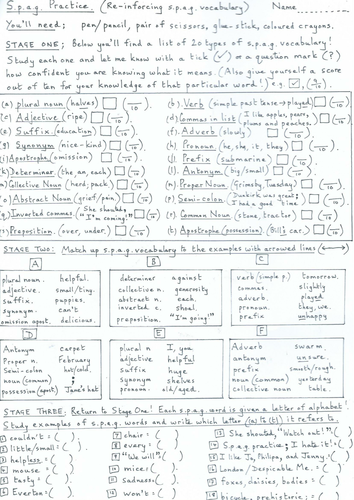 S.p.a.g. Practice. (Re-inforcing s.p.a.g. vocabulary) Name
You'll need; pen/pencil, pair of scissors, glue-stick, coloured crayons.
STAGE ONE; Below you'll find a list of 20 types of s.p.a.g. vocabulary!
Study each one and let me know with a tick (✓) or a question mark (?)
how confident you are knowing what it means. (Also give yourself a score
out of ten for your knowledge of that particular word!)
(a) plural noun (halves) (/10)
(b) Verb (simple past tense → played) (/10)
(c) Adjective (ripe) (/10)
(d) Commas in list (I like apples, pears, plums and peaches.) (/10)
(e) Suffix (education) (/10)
(f) Adverb (slowly) (/10)
(g) Synonym (nice-kind) (/10)
(h) Pronoun (he, she, it, they) (/10)
(i) Apostrophe (omission) (/10)
(j) Prefix (submarine) (/10)
(k) Determiner (the, an, each) (/10)
(l) Antonym (big/small) (/10)
(m) Collective Noun (herd; pack) (/10)
(n) Proper Noun (Grimsby, Tuesday) (/10)
(o) Abstract Noun (grief/pain) (/10)
(p) Semi-colon (work was great; I had a good time) (/10)
(q) Inverted commas ("I'm coming!") (/10)
(r) Common Noun (stone, tractor) (/10)
(s) Preposition (over, under) (/10)
(t) Apostrophe (possession) (Bill's car.) (/10)
STAGE TWO: Match up s.p.a.g. vocabulary to the examples with arrowed lines
A
plural noun. helpful.
adjective. small/tiny.
suffix. puppies.
synonym. can't
omission apost. delicious.
B
determiner against
collective n. generosity
abstract n. each.
inverted c. shoal.
preposition. "I'm going"
C
verb (simple p.) tomorrow.
commas. slightly
adverb. played
pronoun. they, we.
prefix unhappy
D
Antonym carpet
Proper n. February
Semi-colon hot/cold.
noun (common) ;
possession (apost) Jane's hat
E
plural n I, you
adjective helpful
suffix huge
synonym shelves
pronoun. old/aged.
F
Adverb swarm
antonym unsure.
prefix smooth/rough.
noun (common) yesterday
collective noun table.
STAGE THREE; Return to Stage One! Each s.p.a.g. word is given a letter of alphabet!
Study examples of s.p.a.g. words and write which letter (a) to (t) it refers to.
1 couldn't: ( )
2 little/small: ( )
3 helpless = ( )
4 mouse = ( )
5 tasty = ( )
6 Everton: ( )
7 chair = ( )
8 every = ( )
9 "We will" ( )
10 nice: ( )
11 sadness: ( )
12 won't = ( )
13 She shouted, "Watch out!" ( )
14 S.p.a.g. practice; I hate it! ( )
15 I like Jo, Philipa, and Jenny. ( )
16 London/Despicable Me. : ( )
17 foxes, daisies, bodies : ( )
18 bicycle, prehistoric; = ( )